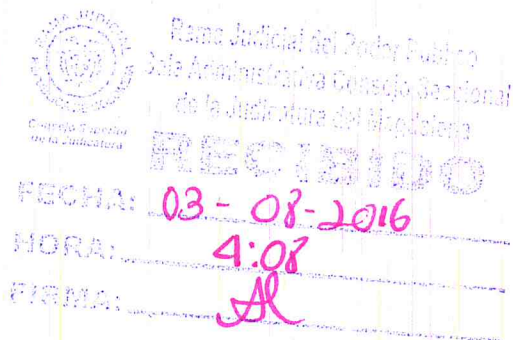 RAMA JUDICIAL
Consejo Superior
de la Judicatura
Rama Judicial del Poder Público
Sala Administrativa Consejo Seccional
de la Judicatura del Magdalena
RECIBIDO
FECHA: 03-08-2016
HORA: 4:08
FIRMA: